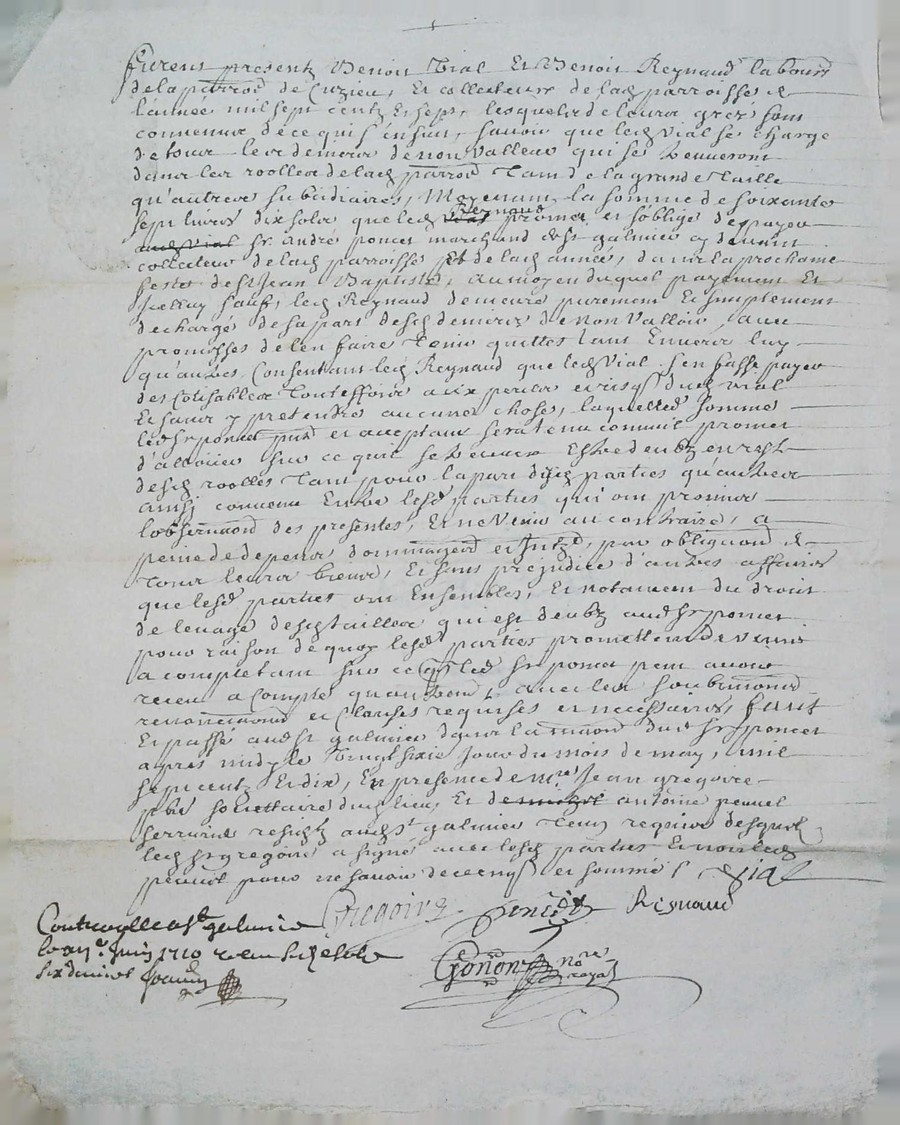 furent présentz Benoit Vial Et Benoit Reynaud labours
de la parroe de Cuzieu, Et collecteurs de lad parroisse de
l'année mil sept centz Et sept, lesquels de leurs grez sont
convenus de ce qui s'ensuit, savoir que led Vial se charge
de tous les deniers de non valleur qui se treuveront
dans les roolles de lad parroe Tant de la grande Taille
qu'autres subsidiaires, Moyenant la somme de soixante
sept livres dix solz que led Reynaud promet et s'oblige de payer
aud Vial Sr andré poncet marchand de St galmier cy devant
collecteur de lad parroisse Et de lad année, dans la prochaine
feste de St Jean Baptiste, au moyen duquel payement Et
Icelluy fait, led Reynaud demeure purement Et simplement
dechargé de sa part desd deniers de non valleur, avec
promesse de l'en faire Tenir quitte Tant Envers luy
qu'autres, Consentant led Reynaud que led Vial s'en fasse payer
des Cotisables Touteffois aux perilz et risq dud Vial
Et sans y pretendre aucune chose, laquelle somme
led Sr poncet pnt et acceptant sera tenu comme promet
d'alloüer sur ce qui se treuve Estre deubz en reste
desd roolles Tant pour la part desd parties qu'autres
ainsy convenu Entre lesd parties qui ont promis
l'observaon des presentes, Et ne venir au contraire, a
peine de depens dommages et Intz, par obligaon de
Tous leurs biens, Et sans préjudice d'autres affaires
que lesd parties ont Ensembles, Et notament du droit
de levage desd Tailles qui est deubz aud Sr poncet
pour raison de quoy lesd parties promettent de venir
a compte tant sur ce q led Sr poncet peut avoir
receu a Compte qu'autremt, avec les soubmions
renonciaons et Clauses requises et necessaires, fait
Et passé aud St galmier dans la maison dud Sr poncet
apres midy le Vingt sixie Jour du mois de may, mil
sept centz Et dix, En presence de mre Jean gregoire
pbr societtaire dud lieu, Et de antoine penel
serrurier residtz aud St galmier Temoins requis desquelz
led Sr gregoire a signé avec lesd parties Et non led
penel pour ne savoir de ce enquis et sommé Vial
Gregoire poncet Reynaud
Controolle a St galmier
le Juin 1710 receu six solz
six deniers
Gonon nore
royal